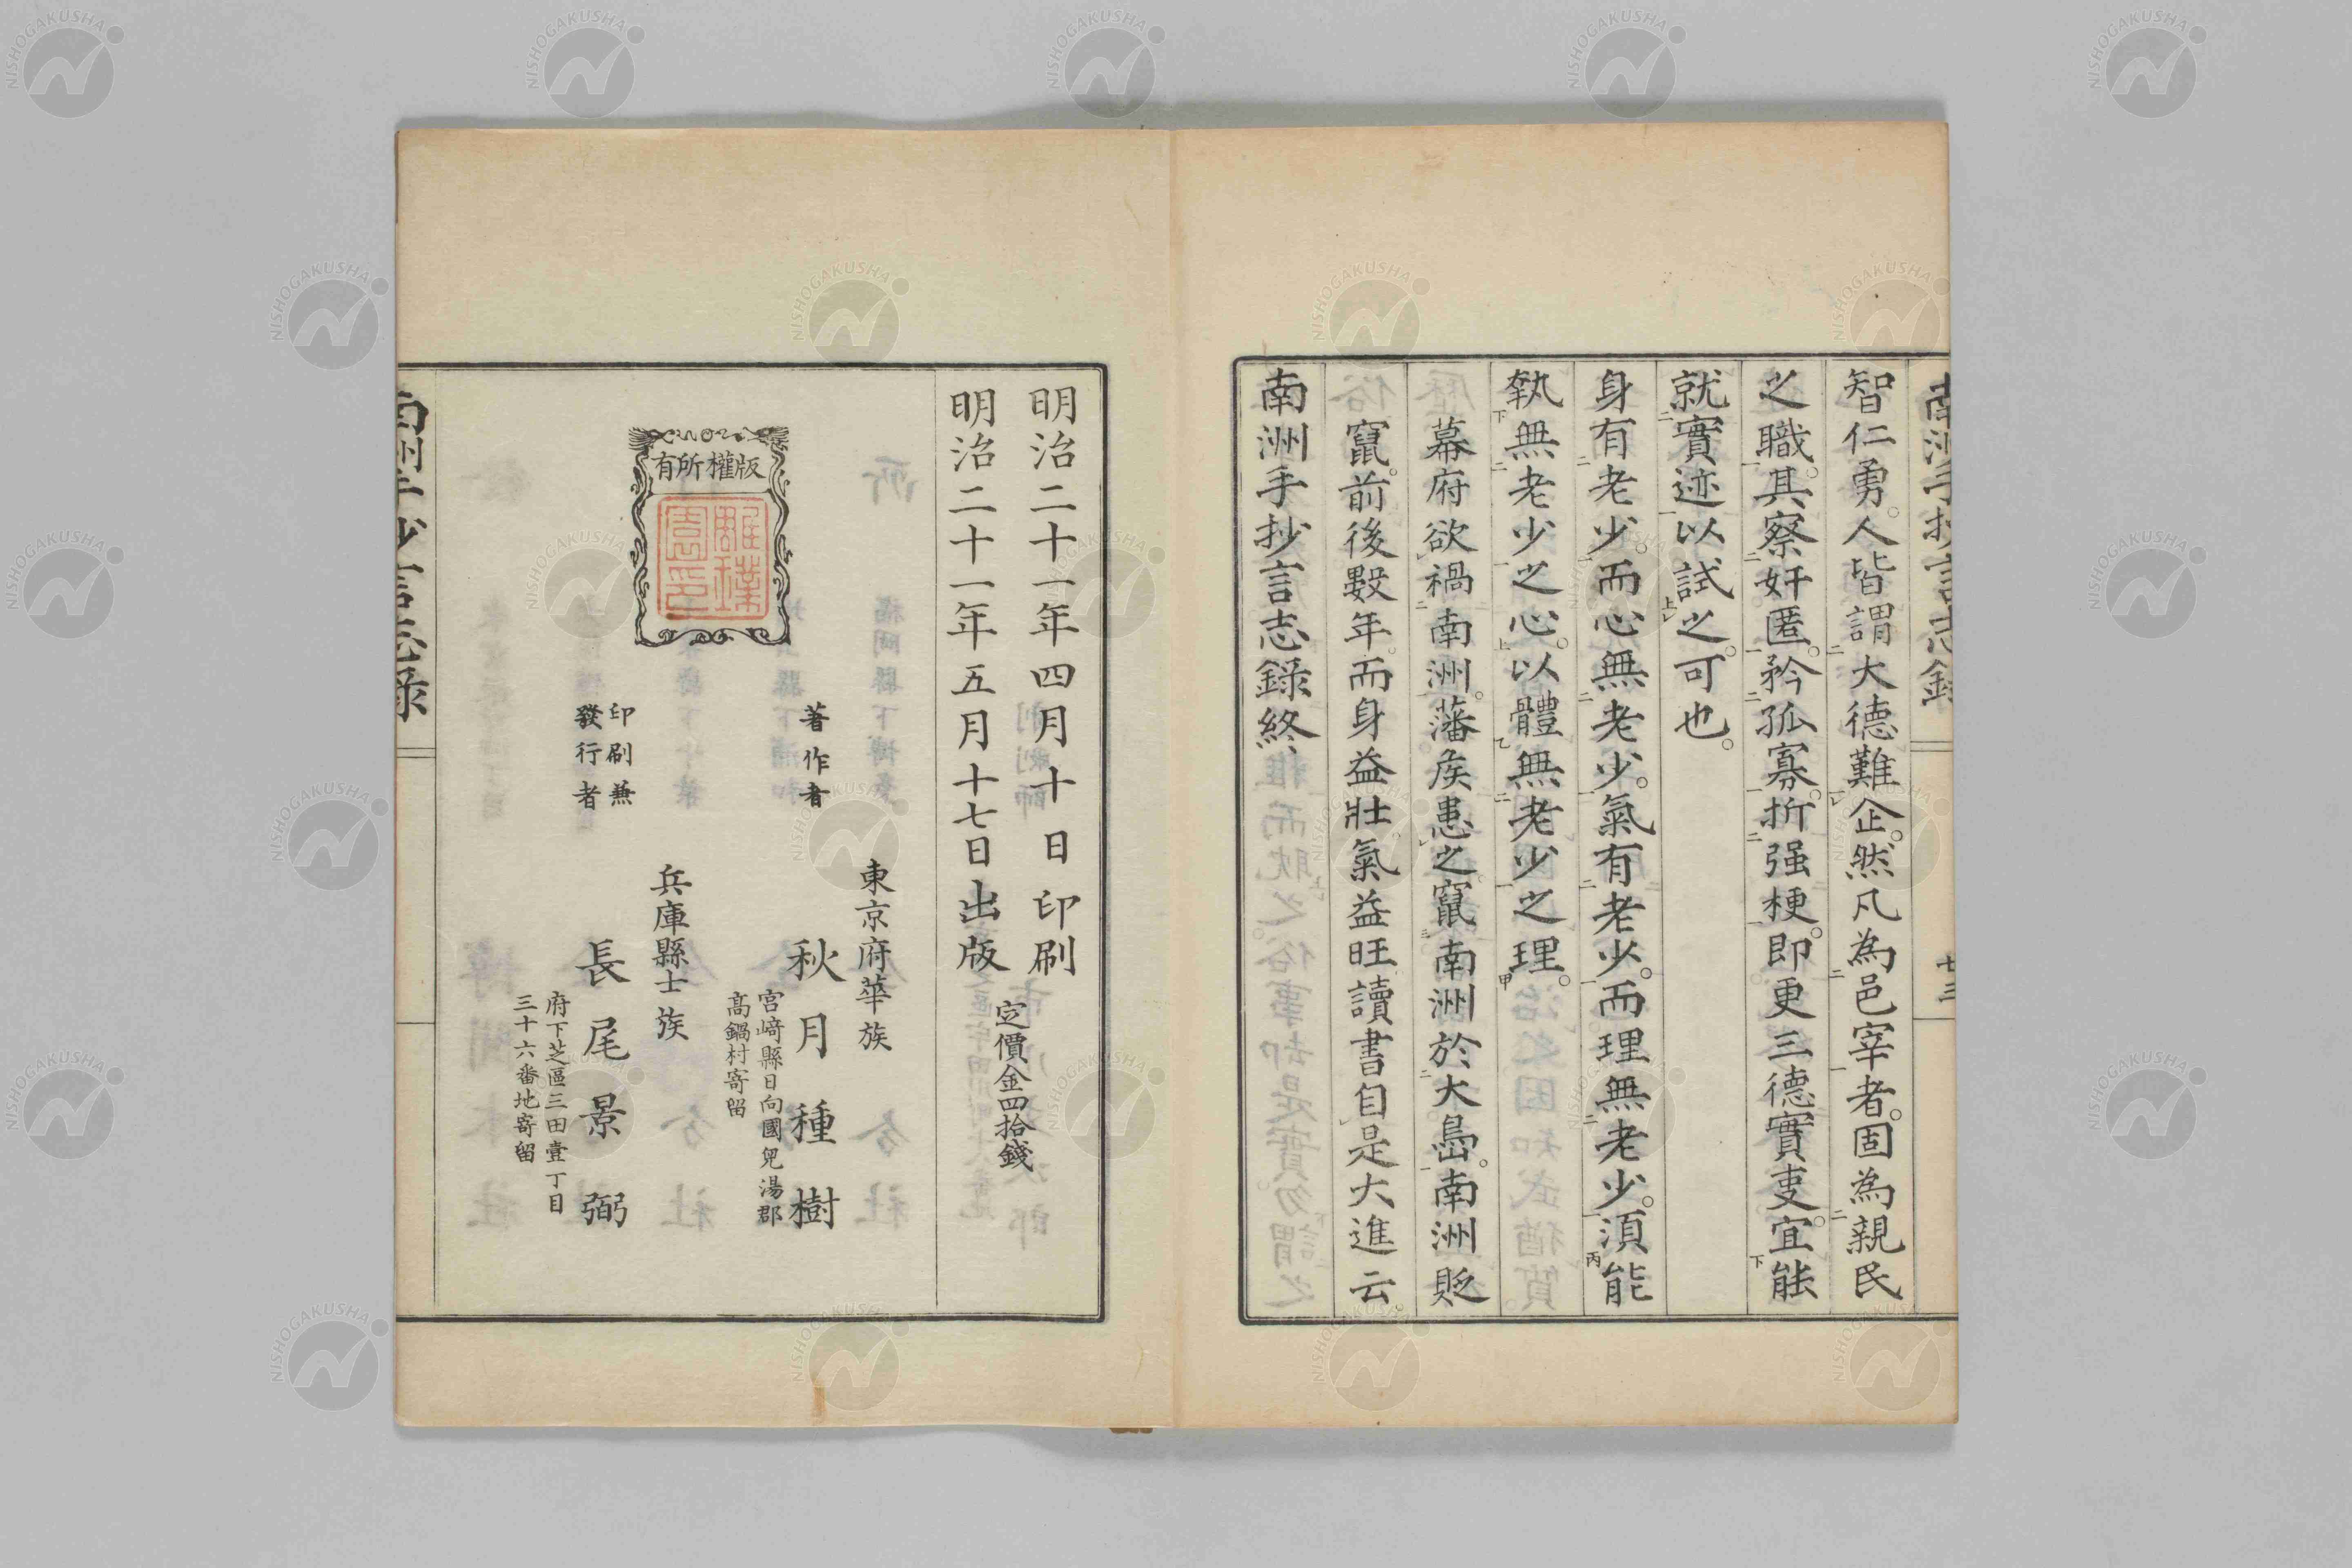 南洲手抄言志錄
智仁勇。人皆謂大德難企。然凡為邑宰者。固為親民
之職。其察奸匿。矜孤寡。折强梗。即更三德實叓。宜能
就實迹以試之。可也。
身有老少。而心無老少。氣有老少。而理無老少。須能
執無老少之心。以體無老少之理。
幕府欲禍南洲。藩矦患之竄南洲於大島。南洲貶
竄。前後數年。而身益壯。氣益旺讀書自是大進云
南洲手抄言志錄終
明治二十一年四月十日印刷
明治二十一年五月十七日出版
定價金四拾錢
版權所有
東京府華族
著作者
秋月種樹
宮﨑縣日向國兒湯郡
髙鍋村寄留
兵庫縣士族
印刷兼
發行者
長尾景弼
府下芝區三田壹丁目
三十六番地寄留
NISHOGAKUSHA